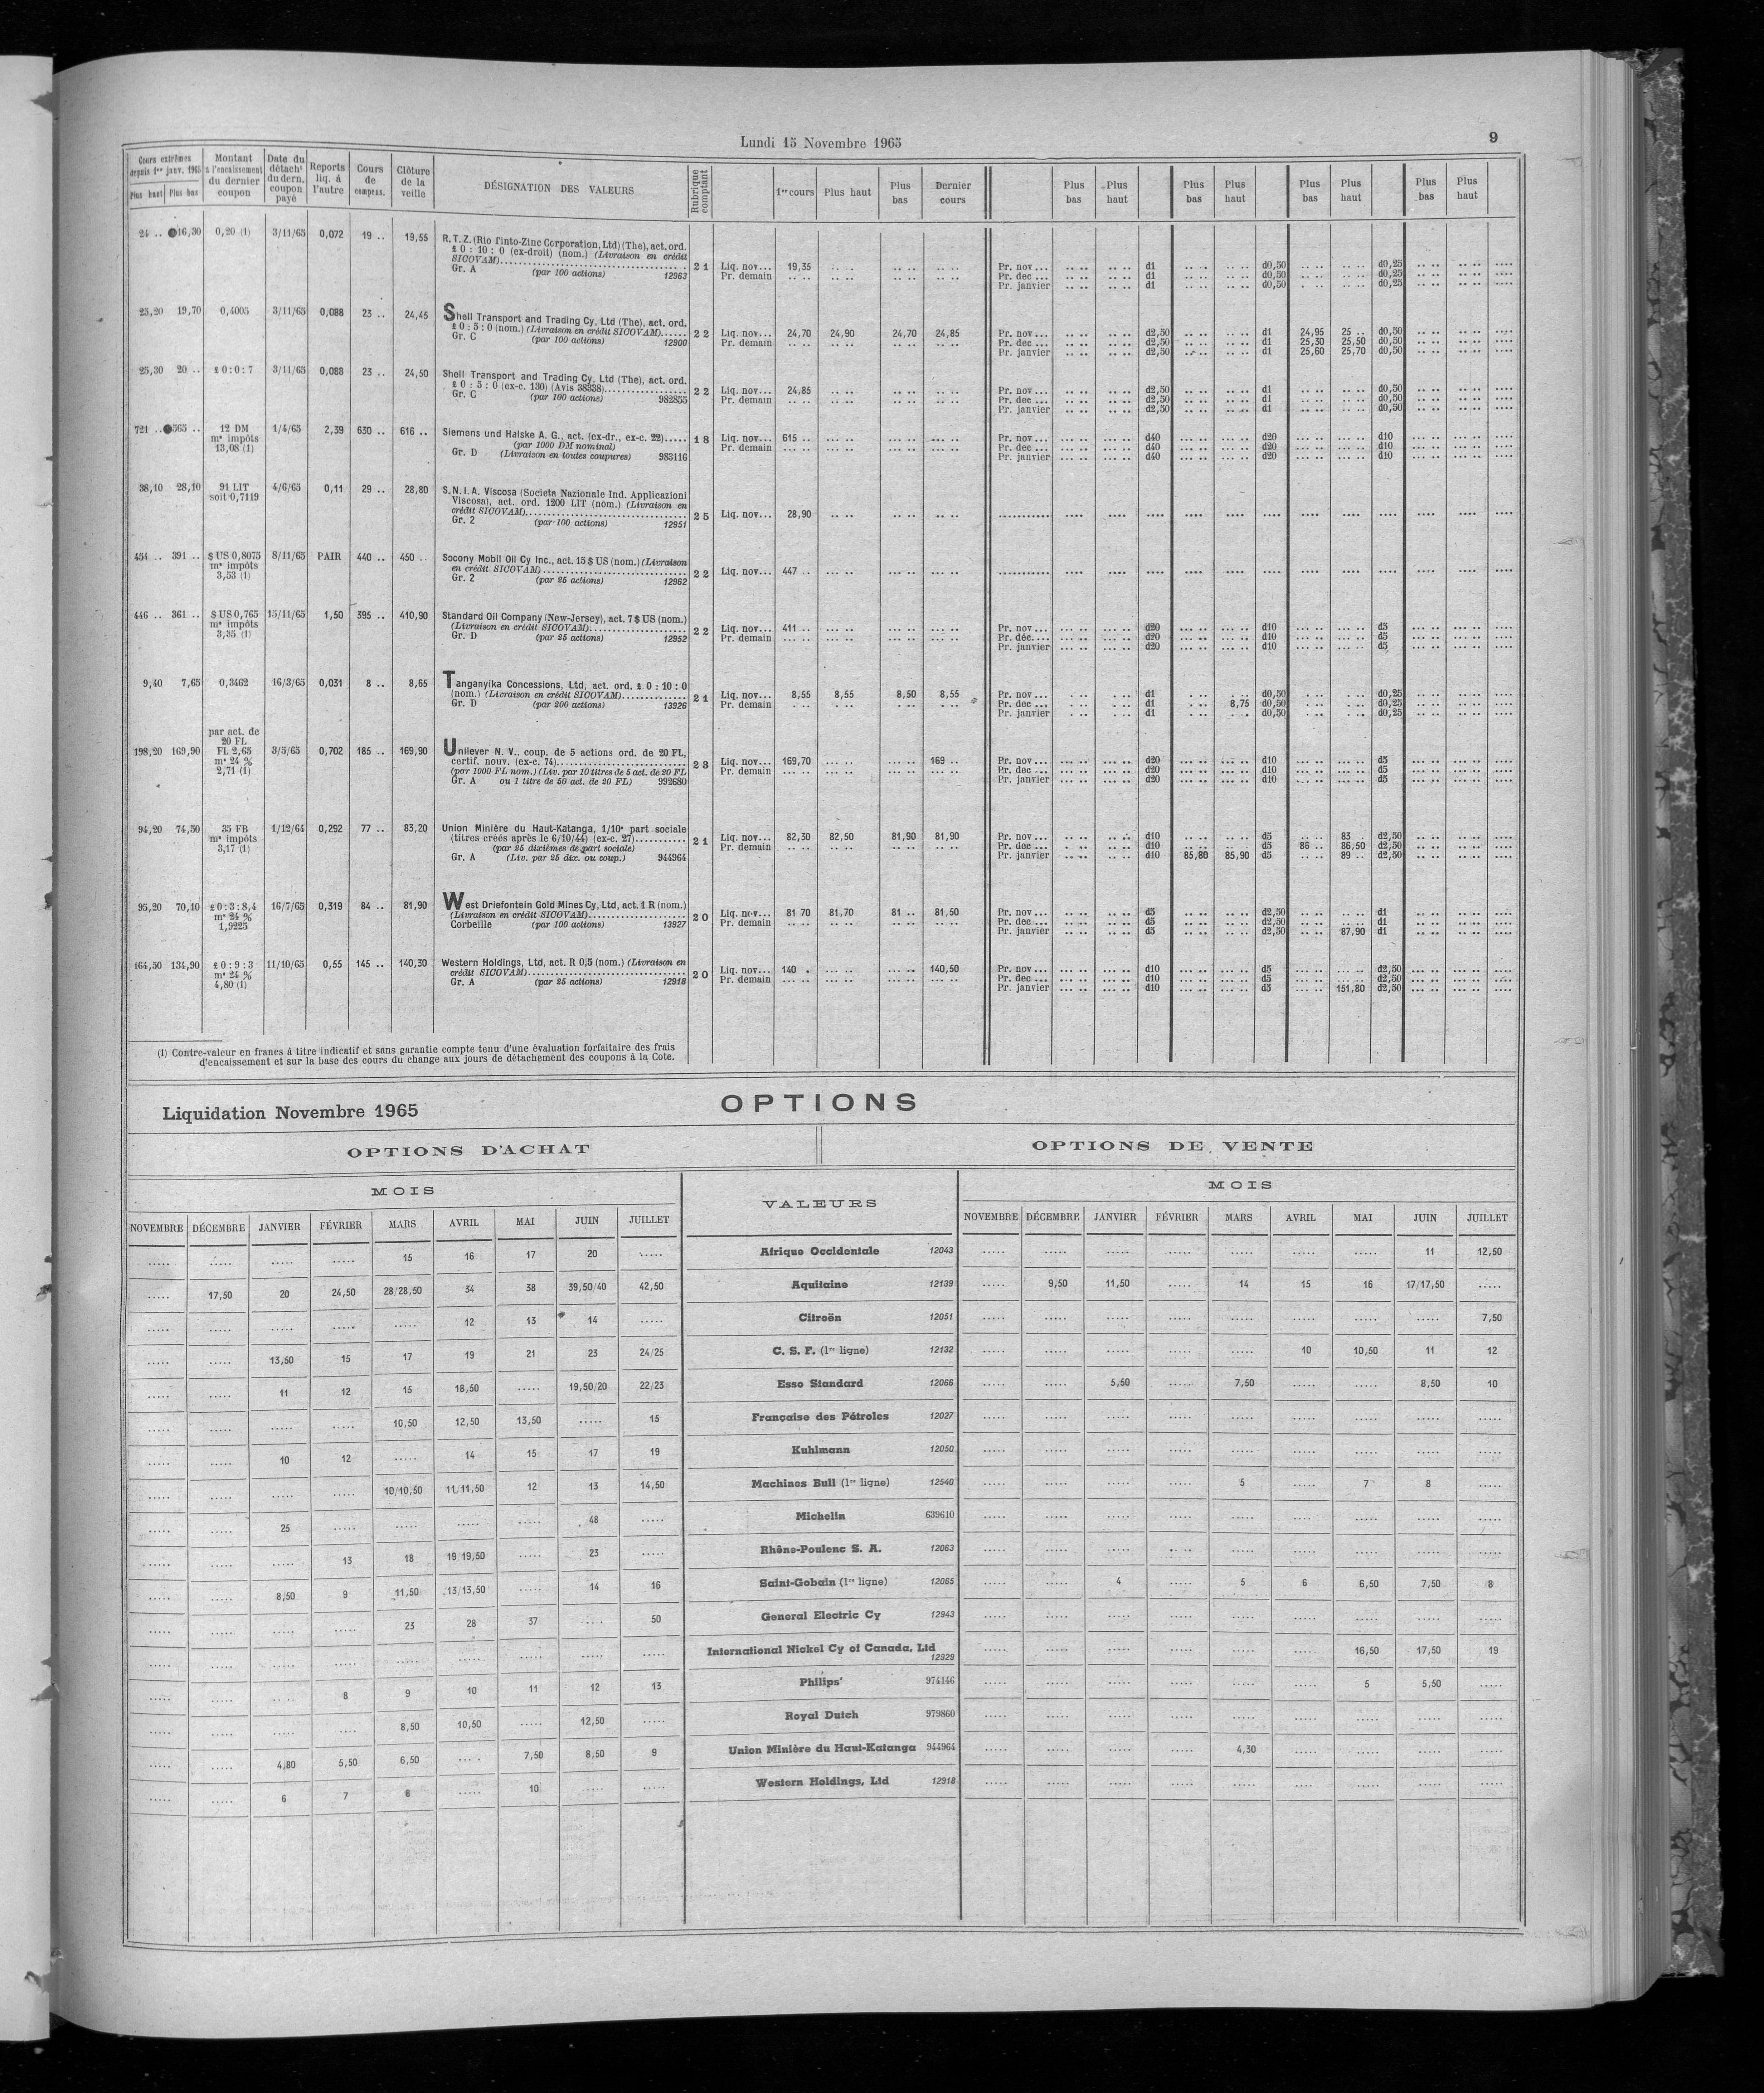 Lundi 15 Novembre 1965
9
Cours extrêmes depuis 1er janv. 1965 Plus haut Plus bas | Montant à l'encaissement du dernier coupon | Date du détacht du dern. coupon payé | Reports liq. à l'autre | Cours de compens. | Clôture de la veille | DÉSIGNATION DES VALEURS | Rubrique comptant | 1er cours | Plus haut | Plus bas | Dernier cours | Plus bas | Plus haut | Plus bas | Plus haut | Plus bas | Plus haut | Plus bas | Plus haut
24 .. 16,30 0,20 (1) 3/11/65 0,072 19 .. 19,55 R.T.Z. (Rio Tinto-Zinc Corporation, Ltd) (The), act. ord.
£ 0 : 10 : 0 (ex-droit) (nom.) (Livraison en crédit
SICOVAM) 21 Liq. nov... 19,35 Pr. nov... d1 d0,50 d0,25
Gr. A (par 100 actions) 12963 Pr. demain Pr. dec ... d1 d0,50 d0,25
Pr. janvier d1 d0,50 d0,25
25,20 19,70 0,4005 3/11/65 0,088 23 .. 24,45 Shell Transport and Trading Cy, Ltd (The), act. ord.
£ 0 : 5 : 0 (nom.) (Livraison en crédit SICOVAM) 22 Liq. nov... 24,70 24,90 24,70 24,85 Pr. nov... d2,50 d1 24,95 25 .. d0,50
Gr. C (par 100 actions) 12900 Pr. demain Pr. dec ... d2,50 d1 25,30 25,50 d0,50
Pr. janvier d2,50 d1 25,60 25,70 d0,50
25,30 20 .. £ 0 : 0 : 7 3/11/65 0,088 23 .. 24,50 Shell Transport and Trading Cy, Ltd (The), act. ord.
£ 0 : 5 : 0 (ex-c. 130) (Avis 38338) 22 Liq. nov... 24,85 Pr. nov... d2,50 d1 d0,50
Gr. C (par 100 actions) 982855 Pr. demain Pr. dec ... d2,50 d1 d0,50
Pr. janvier d2,50 d1 d0,50
721 .. 565 .. 12 DM 1/4/65 2,39 630 .. 616 .. Siemens und Halske A. G., act. (ex-dr., ex-c. 22) 18 Liq. nov... 615 .. Pr. nov... d40 d20 d10
ms impôts (par 1000 DM nominal) Pr. demain Pr. dec ... d40 d20 d10
13,08 (1) Gr. D (Livraison en toutes coupures) 983116 Pr. janvier d40 d20 d10
38,10 28,10 91 LIT 4/6/65 0,11 29 .. 28,80 S.N.I.A. Viscosa (Societa Nazionale Ind. Applicazioni
soit 0,7119 Viscosa), act. ord. 1200 LIT (nom.) (Livraison en
crédit SICOVAM) 25 Liq. nov... 28,90
Gr. 2 (par 100 actions) 12951
454 .. 391 .. $ US 0,8075 8/11/65 PAIR 440 .. 450 .. Socony Mobil Oil Cy Inc., act. 15 $ US (nom.) (Livraison
ms impôts en crédit SICOVAM) 22 Liq. nov... 447 ..
3,53 (1) Gr. 2 (par 25 actions) 12962
446 .. 361 .. $ US 0,765 15/11/65 1,50 395 .. 410,90 Standard Oil Company (New-Jersey), act. 7 $ US (nom.)
ms impôts (Livraison en crédit SICOVAM) 22 Liq. nov... 411 .. Pr. nov... d20 d10 d5
3,35 (1) Gr. D (par 25 actions) 12952 Pr. demain Pr. déc.... d20 d10 d5
Pr. janvier d20 d10 d5
9,40 7,65 0,3462 16/3/65 0,031 8 .. 8,65 Tanganyika Concessions, Ltd, act. ord. £ 0 : 10 : 0
(nom.) (Livraison en crédit SICOVAM) 21 Liq. nov... 8,55 8,55 8,50 8,55 Pr. nov... d1 d0,50 d0,25
Gr. D (par 200 actions) 13926 Pr. demain Pr. dec ... d1 8,75 d0,50 d0,25
Pr. janvier d1 d0,50 d0,25
par act. de
20 FL
198,20 169,90 FL 2,65 3/5/65 0,702 185 .. 169,90 Unilever N. V., coup. de 5 actions ord. de 20 FL,
ms 24 % certif. nouv. (ex-c. 74) 28 Liq. nov... 169,70 169 .. Pr. nov... d20 d10 d5
2,71 (1) (par 1000 FL nom.) (Liv. par 10 titres de 5 act. de 20 FL Pr. demain Pr. dec ... d20 d10 d5
Gr. A ou 1 titre de 50 act. de 20 FL) 992680 Pr. janvier d20 d10 d5
94,20 74,50 35 FB 1/12/64 0,292 77 .. 83,20 Union Minière du Haut-Katanga, 1/10e part sociale
ms impôts (titres créés après le 6/10/44) (ex-c. 27) 21 Liq. nov... 82,30 82,50 81,90 81,90 Pr. nov... d10 d5 83 .. d2,50
3,17 (1) (par 25 dixièmes de part sociale) Pr. demain Pr. dec ... d10 d5 86 .. 86,50 d2,50
Gr. A (Liv. par 25 dix. ou coup.) 944964 Pr. janvier d10 85,80 85,90 d5 89 .. d2,50
95,20 70,10 £ 0 : 3 : 8,4 16/7/65 0,319 84 .. 81,90 West Driefontein Gold Mines Cy, Ltd, act. 1 R (nom.)
ms 24 % (Livraison en crédit SICOVAM) 20 Liq. nov... 81 70 81,70 81 .. 81,50 Pr. nov... d5 d2,50 d1
1,9225 Corbeille (par 100 actions) 13927 Pr. demain Pr. dec ... d5 d2,50 d1
Pr. janvier d5 d2,50 87,90 d1
164,50 134,90 £ 0 : 9 : 3 11/10/65 0,55 145 .. 140,30 Western Holdings, Ltd, act. R 0,5 (nom.) (Livraison en
ms 24 % crédit SICOVAM) 20 Liq. nov... 140 . 140,50 Pr. nov... d10 d5 d2,50
4,80 (1) Gr. A (par 25 actions) 12918 Pr. demain Pr. dec ... d10 d5 d2,50
Pr. janvier d10 d5 151,80 d2,50
(1) Contre-valeur en francs à titre indicatif et sans garantie compte tenu d'une évaluation forfaitaire des frais
d'encaissement et sur la base des cours du change aux jours de détachement des coupons à la Cote.
Liquidation Novembre 1965
OPTIONS
OPTIONS D'ACHAT
OPTIONS DE VENTE
MOIS
VALEURS
MOIS
NOVEMBRE DÉCEMBRE JANVIER FÉVRIER MARS AVRIL MAI JUIN JUILLET
NOVEMBRE DÉCEMBRE JANVIER FÉVRIER MARS AVRIL MAI JUIN JUILLET
..... ..... ..... ..... 15 16 17 20 ..... Afrique Occidentale 12043 ..... ..... ..... ..... ..... ..... ..... 11 12,50
..... 17,50 20 24,50 28/28,50 34 38 39,50/40 42,50 Aquitaine 12139 ..... 9,50 11,50 ..... 14 15 16 17/17,50 .....
..... ..... ..... ..... ..... 12 13 14 ..... Citroën 12051 ..... ..... ..... ..... ..... ..... ..... ..... 7,50
..... ..... 13,50 15 17 19 21 23 24/25 C. S. F. (1re ligne) 12132 ..... ..... ..... ..... ..... 10 10,50 11 12
..... ..... 11 12 15 18,50 ..... 19,50/20 22/23 Esso Standard 12066 ..... ..... 5,50 ..... 7,50 ..... ..... 8,50 10
..... ..... ..... ..... 10,50 12,50 13,50 ..... 15 Française des Pétroles 12027 ..... ..... ..... ..... ..... ..... ..... ..... .....
..... ..... 10 12 ..... 14 15 17 19 Kuhlmann 12050 ..... ..... ..... ..... ..... ..... ..... ..... .....
..... ..... ..... ..... 10/10,50 11/11,50 12 13 14,50 Machines Bull (1re ligne) 12540 ..... ..... ..... ..... 5 ..... 7 8 .....
..... ..... 25 ..... ..... ..... ..... 48 ..... Michelin 639610 ..... ..... ..... ..... ..... ..... ..... ..... .....
..... ..... ..... 13 18 19 19,50 ..... 23 ..... Rhône-Poulenc S. A. 12063 ..... ..... ..... ..... ..... ..... ..... ..... .....
..... ..... 8,50 9 11,50 13/13,50 ..... 14 16 Saint-Gobain (1re ligne) 12065 ..... ..... 4 ..... 5 6 6,50 7,50 8
..... ..... ..... ..... 23 28 37 ..... 50 General Electric Cy 12943 ..... ..... ..... ..... ..... ..... ..... ..... .....
..... ..... ..... ..... ..... ..... ..... ..... ..... International Nickel Cy of Canada, Ltd 12929 ..... ..... ..... ..... ..... ..... 16,50 17,50 19
..... ..... ..... 8 9 10 11 12 13 Philips' 974146 ..... ..... ..... ..... ..... ..... 5 5,50 .....
..... ..... ..... ..... 8,50 10,50 ..... 12,50 ..... Royal Dutch 979860 ..... ..... ..... ..... ..... ..... ..... ..... .....
..... ..... 4,80 5,50 6,50 ..... 7,50 8,50 9 Union Minière du Haut-Katanga 944964 ..... ..... ..... ..... 4,30 ..... ..... ..... .....
..... ..... 6 7 8 ..... 10 ..... ..... Western Holdings, Ltd 12918 ..... ..... ..... ..... ..... ..... ..... ..... .....